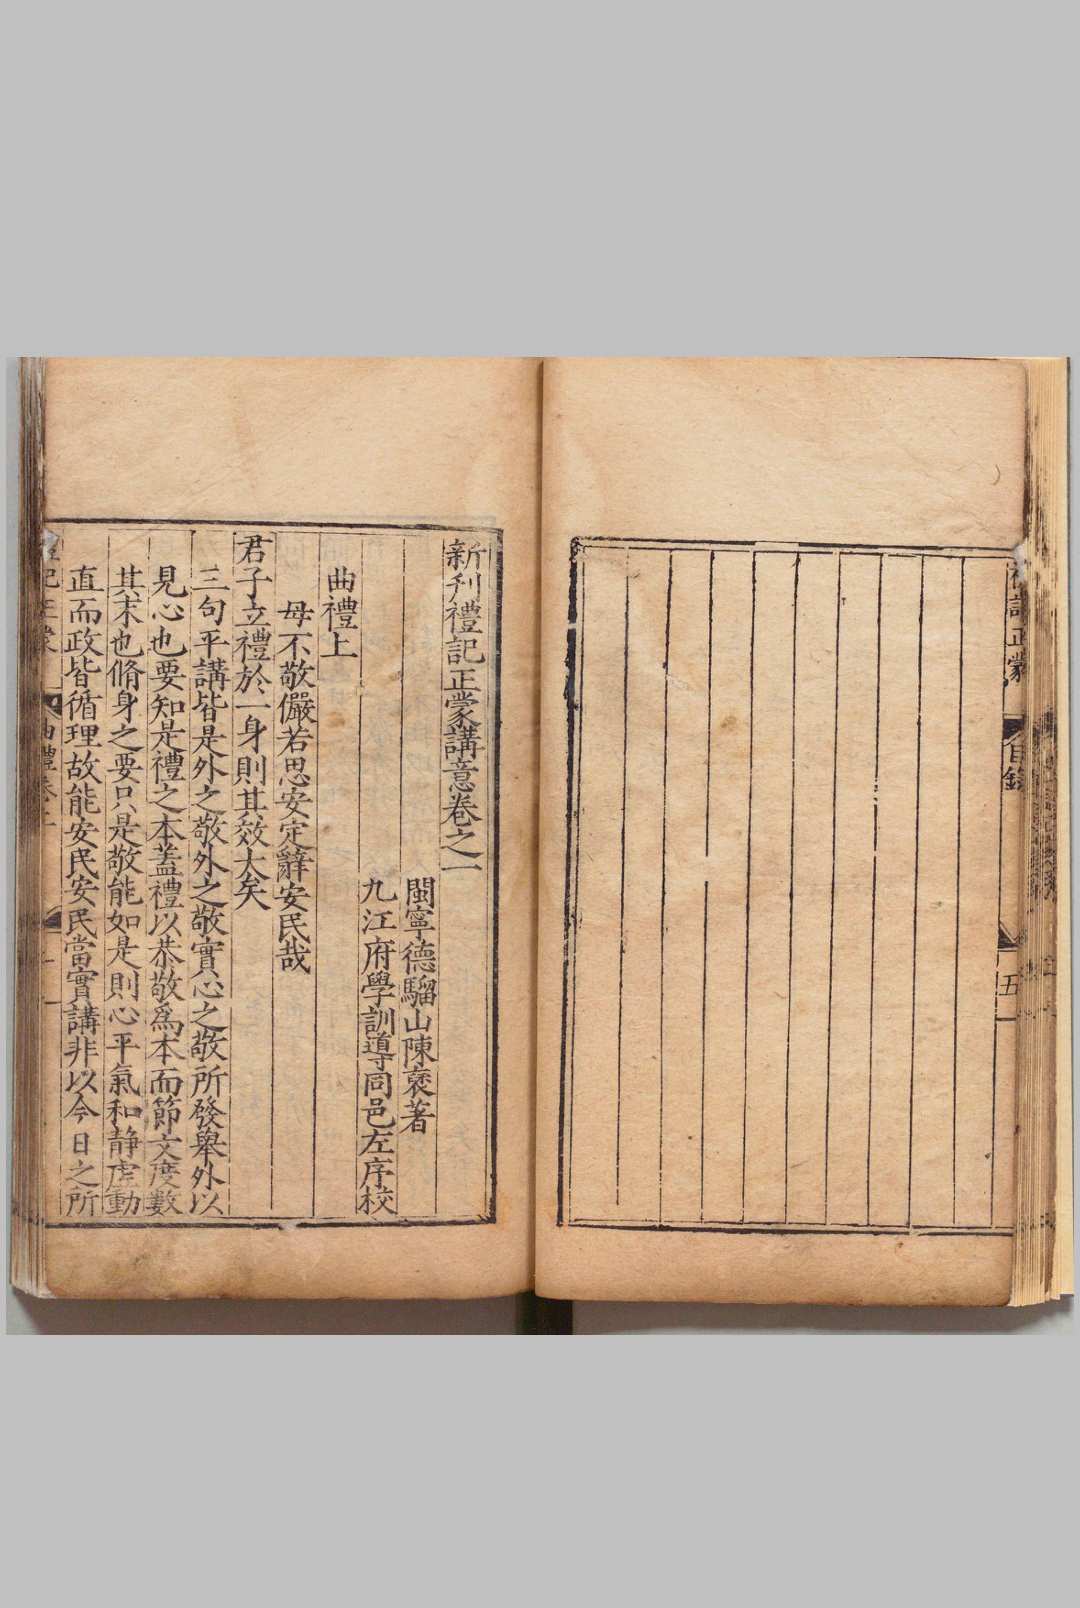 正蒙
目錄
五
新刊禮記正蒙講意卷之一
閩寧德騮山陳褎著
九江府學訓導同邑左序校
曲禮上
毋不敬儼若思安定辭安民哉
君子立禮於一身則其效大矣
三句平講皆是外之敬外之敬實心之敬所發舉外以
見心也要知是禮之本蓋禮以恭敬爲本而節文度數
其末也脩身之要只是敬能如是則心平氣和静虛動
直而政皆循理故能安民安民當實講非以今日之所